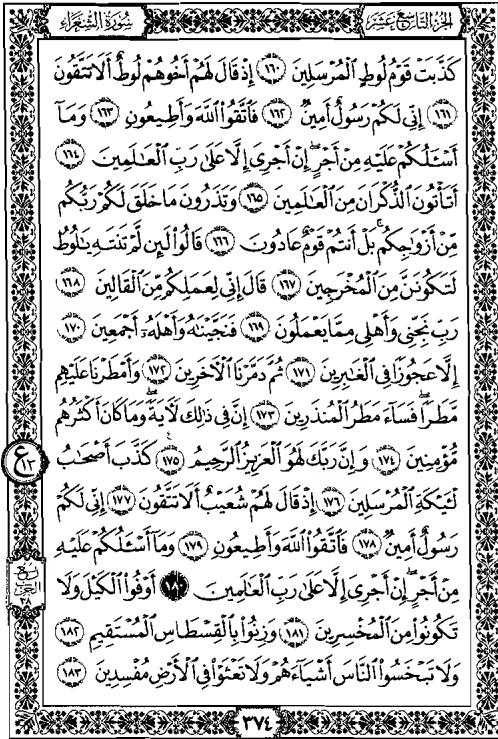 الجزء التاسع عشر
سورة الشعراء
كَذَّبَتْ قَوْمُ لُوطٍ الْمُرْسَلِينَ ١٦٠ إِذْ قَالَ لَهُمْ أَخُوهُمْ لُوطٌ أَلَا تَتَّقُونَ
١٦١ إِنِّي لَكُمْ رَسُولٌ أَمِينٌ ١٦٢ فَاتَّقُوا اللَّهَ وَأَطِيعُونِ ١٦٣ وَمَا
أَسْـَٔلُكُمْ عَلَيْهِ مِنْ أَجْرٍ إِنْ أَجْرِيَ إِلَّا عَلَىٰ رَبِّ الْعَـٰلَمِينَ ١٦٤
أَتَأْتُونَ الذُّكْرَانَ مِنَ الْعَـٰلَمِينَ ١٦٥ وَتَذَرُونَ مَا خَلَقَ لَكُمْ رَبُّكُم
مِّنْ أَزْوَٰجِكُم بَلْ أَنتُمْ قَوْمٌ عَادُونَ ١٦٦ قَالُوا لَئِن لَّمْ تَنتَهِ يَـٰلُوطُ
لَتَكُونَنَّ مِنَ الْمُخْرَجِينَ ١٦٧ قَالَ إِنِّي لِعَمَلِكُم مِّنَ الْقَالِينَ ١٦٨
رَبِّ نَجِّنِي وَأَهْلِي مِمَّا يَعْمَلُونَ ١٦٩ فَنَجَّيْنَـٰهُ وَأَهْلَهُۥ أَجْمَعِينَ ١٧٠
إِلَّا عَجُوزًا فِي الْغَـٰبِرِينَ ١٧١ ثُمَّ دَمَّرْنَا الْآخَرِينَ ١٧٢ وَأَمْطَرْنَا عَلَيْهِم
مَّطَرًا فَسَآءَ مَطَرُ الْمُنذَرِينَ ١٧٣ إِنَّ فِي ذَٰلِكَ لَآيَةً وَمَا كَانَ أَكْثَرُهُم
مُّؤْمِنِينَ ١٧٤ وَإِنَّ رَبَّكَ لَهُوَ الْعَزِيزُ الرَّحِيمُ ١٧٥ كَذَّبَ أَصْحَـٰبُ
لْـَٔيْكَةِ الْمُرْسَلِينَ ١٧٦ إِذْ قَالَ لَهُمْ شُعَيْبٌ أَلَا تَتَّقُونَ ١٧٧ إِنِّي لَكُمْ
رَسُولٌ أَمِينٌ ١٧٨ فَاتَّقُوا اللَّهَ وَأَطِيعُونِ ١٧٩ وَمَآ أَسْـَٔلُكُمْ عَلَيْهِ
مِنْ أَجْرٍ إِنْ أَجْرِيَ إِلَّا عَلَىٰ رَبِّ الْعَـٰلَمِينَ ١٨٠ أَوْفُوا الْكَيْلَ وَلَا
تَكُونُوا مِنَ الْمُخْسِرِينَ ١٨١ وَزِنُوا بِالْقِسْطَاسِ الْمُسْتَقِيمِ ١٨٢
وَلَا تَبْخَسُوا النَّاسَ أَشْيَآءَهُمْ وَلَا تَعْثَوْا فِي الْأَرْضِ مُفْسِدِينَ ١٨٣
ع ١٣
ربع
الحزب
٣٨
٣٧٤